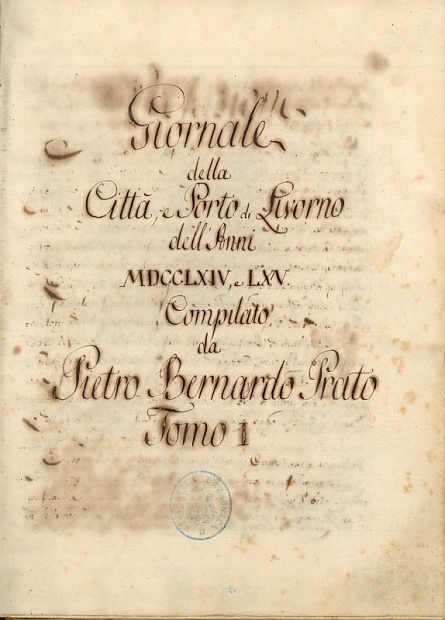 Giornale
della
Città, e Porto di Livorno
dell'Anni
MDCCLXIV, e LXV.
Compilato
da
Pietro Bernardo Prato
Tomo I